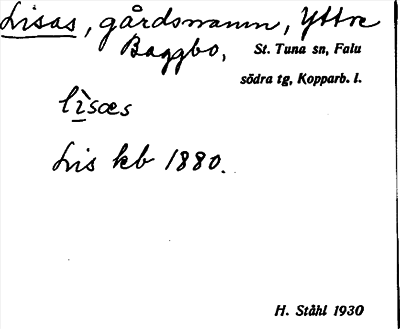 Lisas, gårdsnamn, Yttre
Baggbo, St. Tuna sn, Falu
södra tg, Kopparb. l.
lì̱sæs
Lis kb 1880.
H. Ståhl 1930